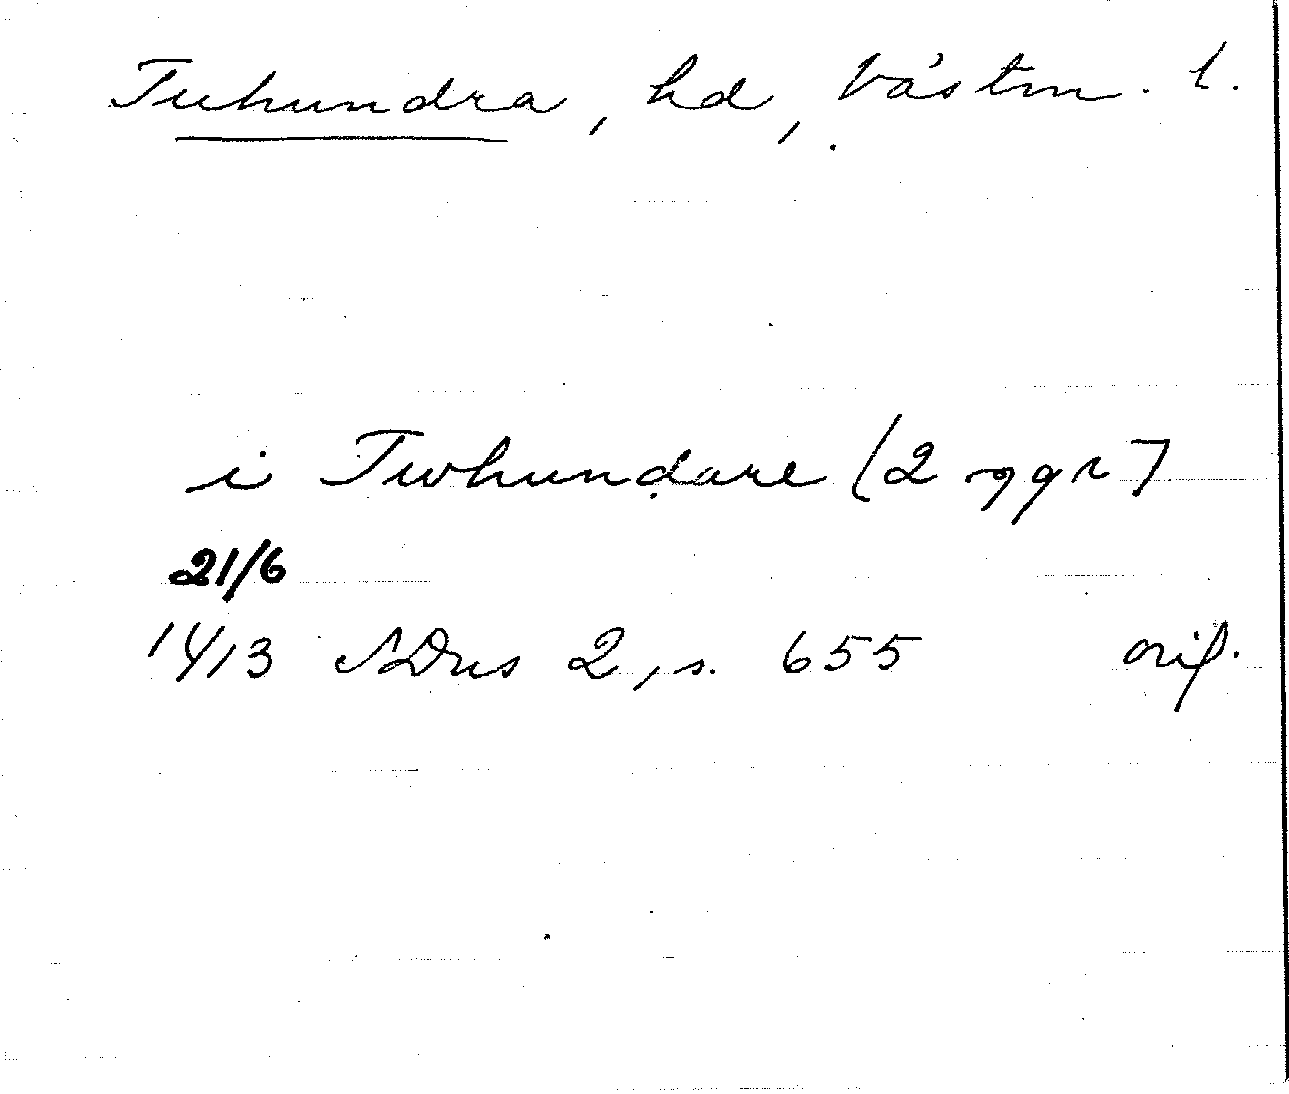 Tuhundra, hd, Västm. l.
i Twhundare (2 ggr)
21/6
1413 SDns 2, s. 655 orig.